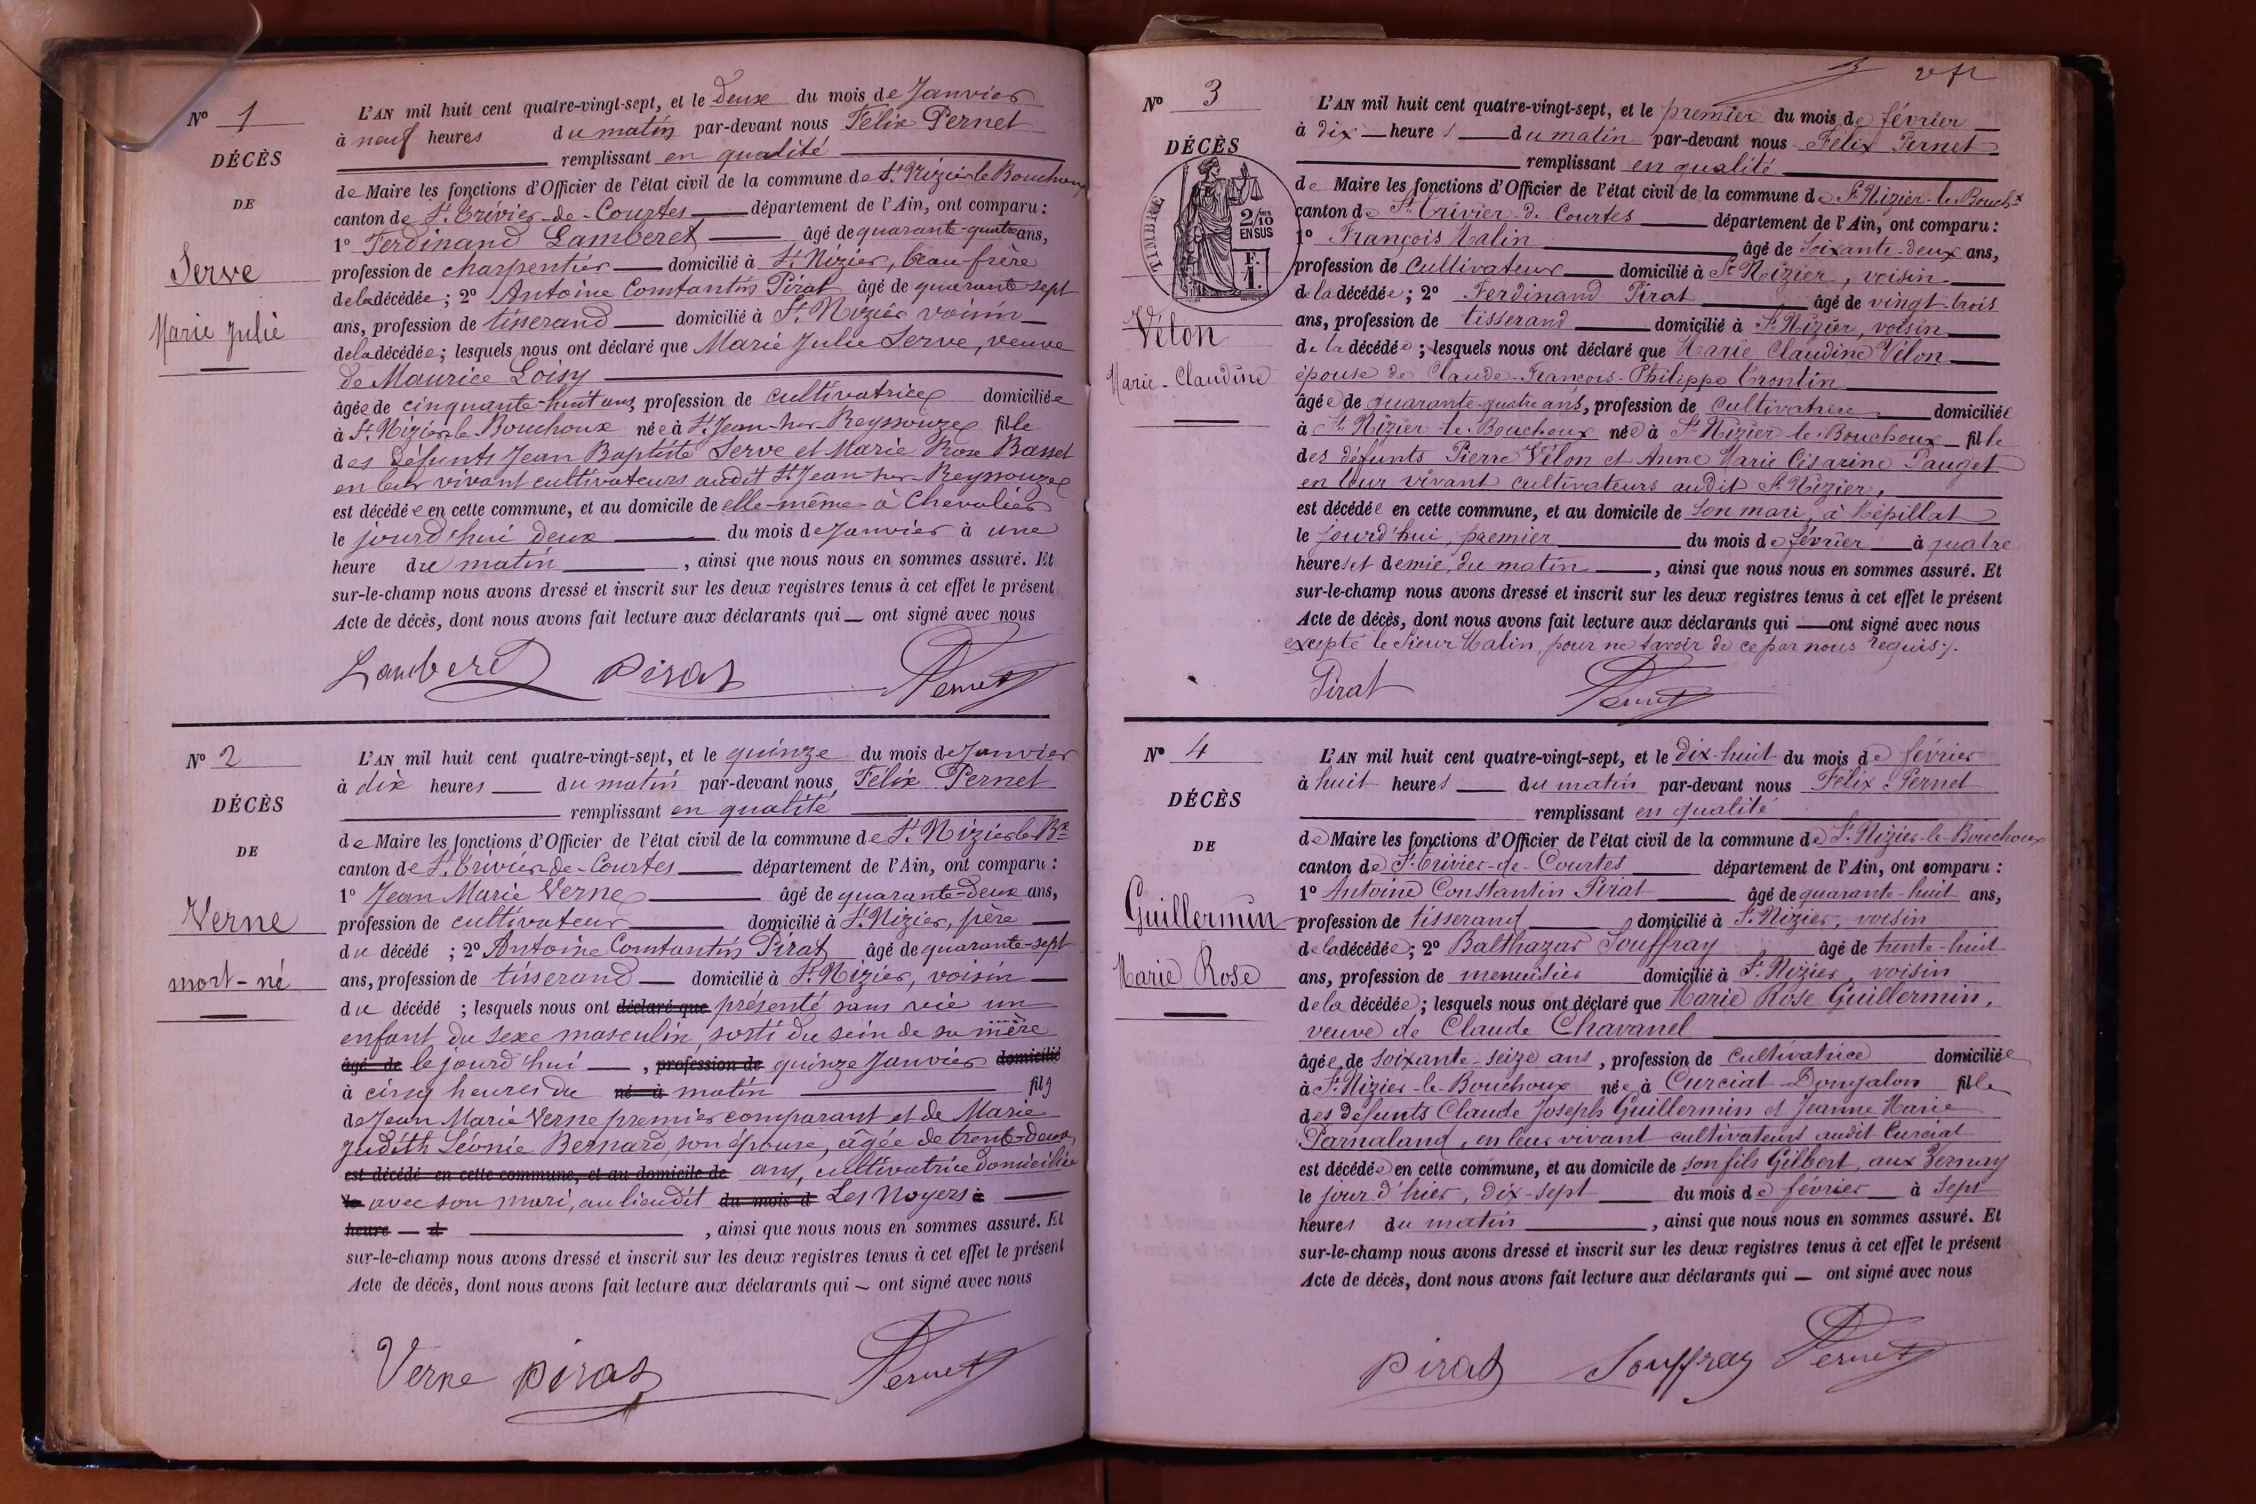 Nº 1
DÉCÈS
DE
Serve
Marie Julie
L'AN mil huit cent quatre-vingt-sept, et le deux du mois de Janvier
à neuf heures du matin par-devant nous Félix Pernet
remplissant en qualité
de Maire les fonctions d'Officier de l'état civil de la commune de St Nizier le Bouchoux
canton de St. Trivier-de-Courtes département de l'Ain, ont comparu :
1º Ferdinand Lamberet âgé de quarante-quatre ans,
profession de charpentier domicilié à St Nizier, beau-frère
de la décédée ; 2º Antoine Constantin Pirat âgé de quarante sept
ans, profession de tisserand domicilié à St. Nizier voisin
de la décédée ; lesquels nous ont déclaré que Marie Julie Serve, veuve
de Maurice Loisy
âgée de cinquante-huit ans, profession de cultivatrice domiciliée
à St. Nizier le Bouchoux née à St. Jean-sur-Reyssouze fille
des défunts Jean Baptiste Serve et Marie Rose Basset
en leur vivant cultivateurs audit St Jean-sur-Reyssouze
est décédée en cette commune, et au domicile de elle-même à Chevalier
le jourd'hui deux du mois de Janvier à une
heure du matin , ainsi que nous nous en sommes assuré. Et
sur-le-champ nous avons dressé et inscrit sur les deux registres tenus à cet effet le présent
Acte de décès, dont nous avons fait lecture aux déclarants qui — ont signé avec nous
Lamberet Pirat Pernet
Nº 2
DÉCÈS
DE
Verne
mort-né
L'AN mil huit cent quatre-vingt-sept, et le quinze du mois de Janvier
à dix heures du matin par-devant nous Félix Pernet
remplissant en qualité
de Maire les fonctions d'Officier de l'état civil de la commune de St. Nizier le Bx
canton de St. Trivier-de-Courtes département de l'Ain, ont comparu :
1º Jean Marie Verne âgé de quarante-deux ans,
profession de cultivateur domicilié à St. Nizier, père
du décédé ; 2º Antoine Constantin Pirat âgé de quarante-sept
ans, profession de tisserand domicilié à St. Nizier, voisin
du décédé ; lesquels nous ont déclaré que présenté sans vie un
enfant du sexe masculin, sorti du sein de sa mère
âgé de le jourd'hui , profession de quinze Janvier domicilié
à cinq heures du né à matin fils
de Jean Marie Verne premier comparant et de Marie
Judith Léonie Bernard, son épouse, âgée de trente-deux
est décédé en cette commune, et au domicile de ans, cultivatrice domiciliée
le avec son mari, au lieudit du mois d Les Noyers à
heure d , ainsi que nous nous en sommes assuré. Et
sur-le-champ nous avons dressé et inscrit sur les deux registres tenus à cet effet le présent
Acte de décès, dont nous avons fait lecture aux déclarants qui — ont signé avec nous
Verne Pirat Pernet
Nº 3
DÉCÈS
TIMBRE
2/10 EN SUS
F. 1.
Vélon
Marie-Claudine
L'AN mil huit cent quatre-vingt-sept, et le premier du mois de février
à dix heures du matin par-devant nous Félix Pernet
remplissant en qualité
de Maire les fonctions d'Officier de l'état civil de la commune de St Nizier-le-Bouchx
canton de St. Trivier-de-Courtes département de l'Ain, ont comparu :
1º François Malin âgé de soixante-deux ans,
profession de cultivateur domicilié à St Nizier, voisin
de la décédée ; 2º Ferdinand Pirat âgé de vingt-trois
ans, profession de tisserand domicilié à St Nizier, voisin
de la décédée ; lesquels nous ont déclaré que Marie Claudine Vélon
épouse de Claude-François-Philippe Trontin
âgée de quarante-quatre ans, profession de cultivatrice domiciliée
à St. Nizier-le-Bouchoux née à St Nizier-le-Bouchoux fille
des défunts Pierre Vélon et Anne Marie Césarine Pauget
en leur vivant cultivateurs audit St Nizier,
est décédée en cette commune, et au domicile de son mari, à Mépillat
le jourd'hui, premier du mois de février à quatre
heures et demie, du matin , ainsi que nous nous en sommes assuré. Et
sur-le-champ nous avons dressé et inscrit sur les deux registres tenus à cet effet le présent
Acte de décès, dont nous avons fait lecture aux déclarants qui — ont signé avec nous
excepté le Sieur Malin, pour ne savoir de ce par nous requis.
Pirat Pernet
Nº 4
DÉCÈS
DE
Guillermin
Marie Rose
L'AN mil huit cent quatre-vingt-sept, et le dix-huit du mois de février
à huit heures du matin par-devant nous Félix Pernet
remplissant en qualité
de Maire les fonctions d'Officier de l'état civil de la commune de St. Nizier-le-Bouchoux
canton de St. Trivier-de-Courtes département de l'Ain, ont comparu :
1º Antoine Constantin Pirat âgé de quarante-huit ans,
profession de tisserand domicilié à St. Nizier, voisin
de la décédée ; 2º Balthazar Souffray âgé de trente-huit
ans, profession de menuisier domicilié à St. Nizier, voisin
de la décédée ; lesquels nous ont déclaré que Marie Rose Guillermin,
veuve de Claude Chavanel
âgée de soixante-seize ans, profession de cultivatrice domiciliée
à St. Nizier-le-Bouchoux née à Curciat-Dongalon fille
des défunts Claude Joseph Guillermin et Jeanne Marie
Parnaland, en leur vivant cultivateurs audit Curciat
est décédée en cette commune, et au domicile de son fils Gilbert, aux Vernay
le jour d'hier, dix-sept du mois de février à sept
heures du matin , ainsi que nous nous en sommes assuré. Et
sur-le-champ nous avons dressé et inscrit sur les deux registres tenus à cet effet le présent
Acte de décès, dont nous avons fait lecture aux déclarants qui — ont signé avec nous
Pirat Souffray Pernet